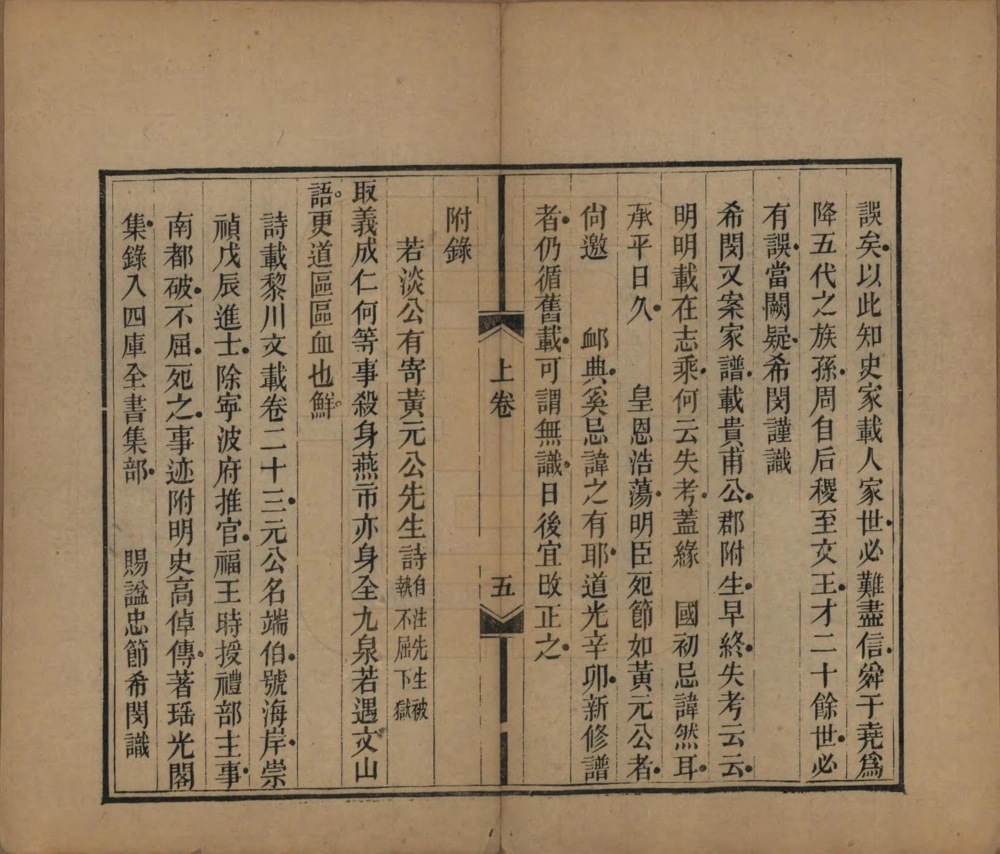 誤矣以此知史家載人家世必難盡信舜于堯爲
降五代之族孫周自后稷至文王才二十餘世必
有誤當闕疑希閔謹識
希閔又案家譜載貴甫公郡附生早終失考云云
明明載在志乘何云失考蓋緣　國初忌諱然耳
承平日久　皇恩浩蕩明臣死節如黃元公者
尙邀　䘏典奚忌諱之有耶道光辛卯新修譜
者仍循舊載可謂無識日後宜改正之
上卷　五
附錄
若淡公有寄黃元公先生詩自注先生被執不屈下獄
取義成仁何等事殺身燕市亦身全九泉若遇文山
語更道區區血也鮮
詩載黎川文載卷二十三元公名端伯號海岸崇
禎戊辰進士除寧波府推官福王時授禮部主事
南都破不屈死之事迹附明史高倬傳著瑤光閣
集錄入四庫全書集部　賜諡忠節希閔識